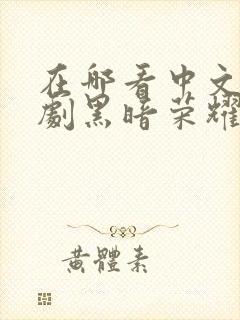 在哪看中文
劇黑暗荣耀
黄體素